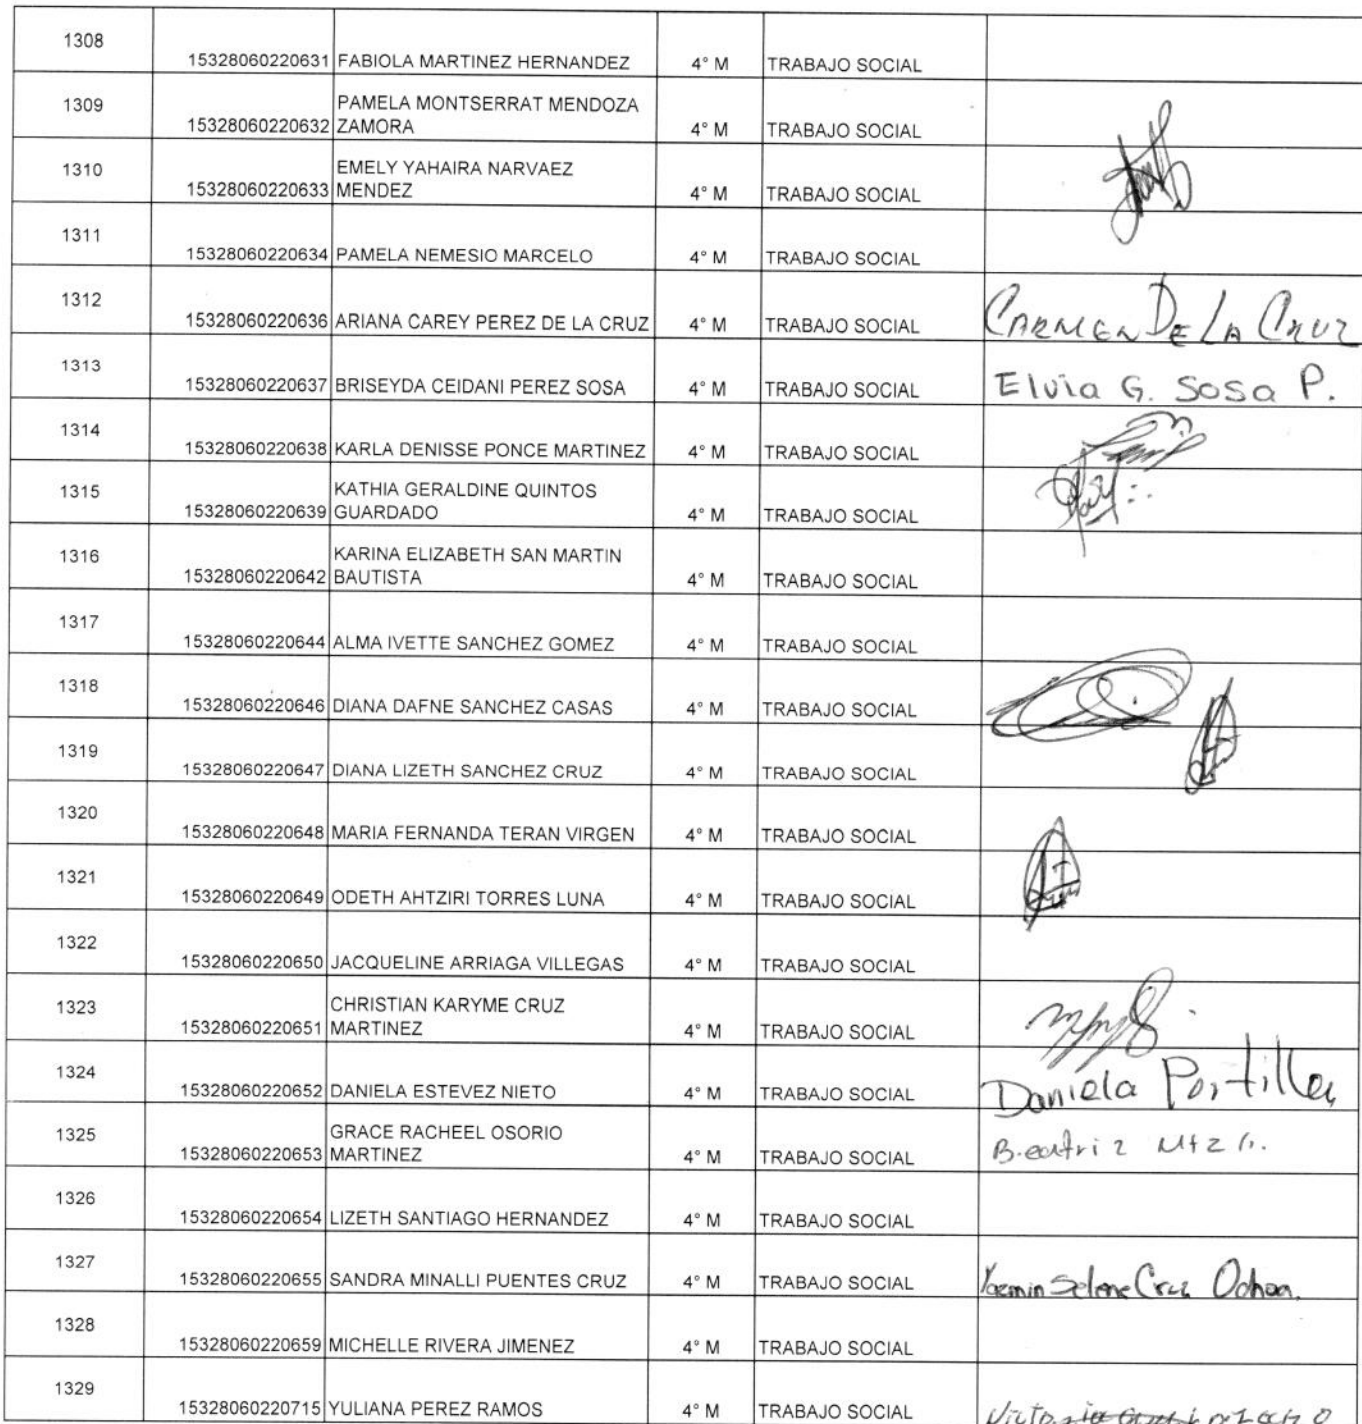 1308 15328060220631 FABIOLA MARTINEZ HERNANDEZ 4° M TRABAJO SOCIAL
1309 15328060220632 PAMELA MONTSERRAT MENDOZA
ZAMORA 4° M TRABAJO SOCIAL
1310 15328060220633 EMELY YAHAIRA NARVAEZ
MENDEZ 4° M TRABAJO SOCIAL
1311 15328060220634 PAMELA NEMESIO MARCELO 4° M TRABAJO SOCIAL
1312 15328060220636 ARIANA CAREY PEREZ DE LA CRUZ 4° M TRABAJO SOCIAL CARMEN DE LA CRUZ
1313 15328060220637 BRISEYDA CEIDANI PEREZ SOSA 4° M TRABAJO SOCIAL Elvia G. Sosa P.
1314 15328060220638 KARLA DENISSE PONCE MARTINEZ 4° M TRABAJO SOCIAL
1315 15328060220639 KATHIA GERALDINE QUINTOS
GUARDADO 4° M TRABAJO SOCIAL
1316 15328060220642 KARINA ELIZABETH SAN MARTIN
BAUTISTA 4° M TRABAJO SOCIAL
1317 15328060220644 ALMA IVETTE SANCHEZ GOMEZ 4° M TRABAJO SOCIAL
1318 15328060220646 DIANA DAFNE SANCHEZ CASAS 4° M TRABAJO SOCIAL
1319 15328060220647 DIANA LIZETH SANCHEZ CRUZ 4° M TRABAJO SOCIAL
1320 15328060220648 MARIA FERNANDA TERAN VIRGEN 4° M TRABAJO SOCIAL
1321 15328060220649 ODETH AHTZIRI TORRES LUNA 4° M TRABAJO SOCIAL
1322 15328060220650 JACQUELINE ARRIAGA VILLEGAS 4° M TRABAJO SOCIAL
1323 15328060220651 CHRISTIAN KARYME CRUZ
MARTINEZ 4° M TRABAJO SOCIAL
1324 15328060220652 DANIELA ESTEVEZ NIETO 4° M TRABAJO SOCIAL Daniela
1325 15328060220653 GRACE RACHEEL OSORIO
MARTINEZ 4° M TRABAJO SOCIAL Beatriz Mtz
1326 15328060220654 LIZETH SANTIAGO HERNANDEZ 4° M TRABAJO SOCIAL
1327 15328060220655 SANDRA MINALLI PUENTES CRUZ 4° M TRABAJO SOCIAL Yazmin Selene Cruz Ochoa.
1328 15328060220659 MICHELLE RIVERA JIMENEZ 4° M TRABAJO SOCIAL
1329 15328060220715 YULIANA PEREZ RAMOS 4° M TRABAJO SOCIAL